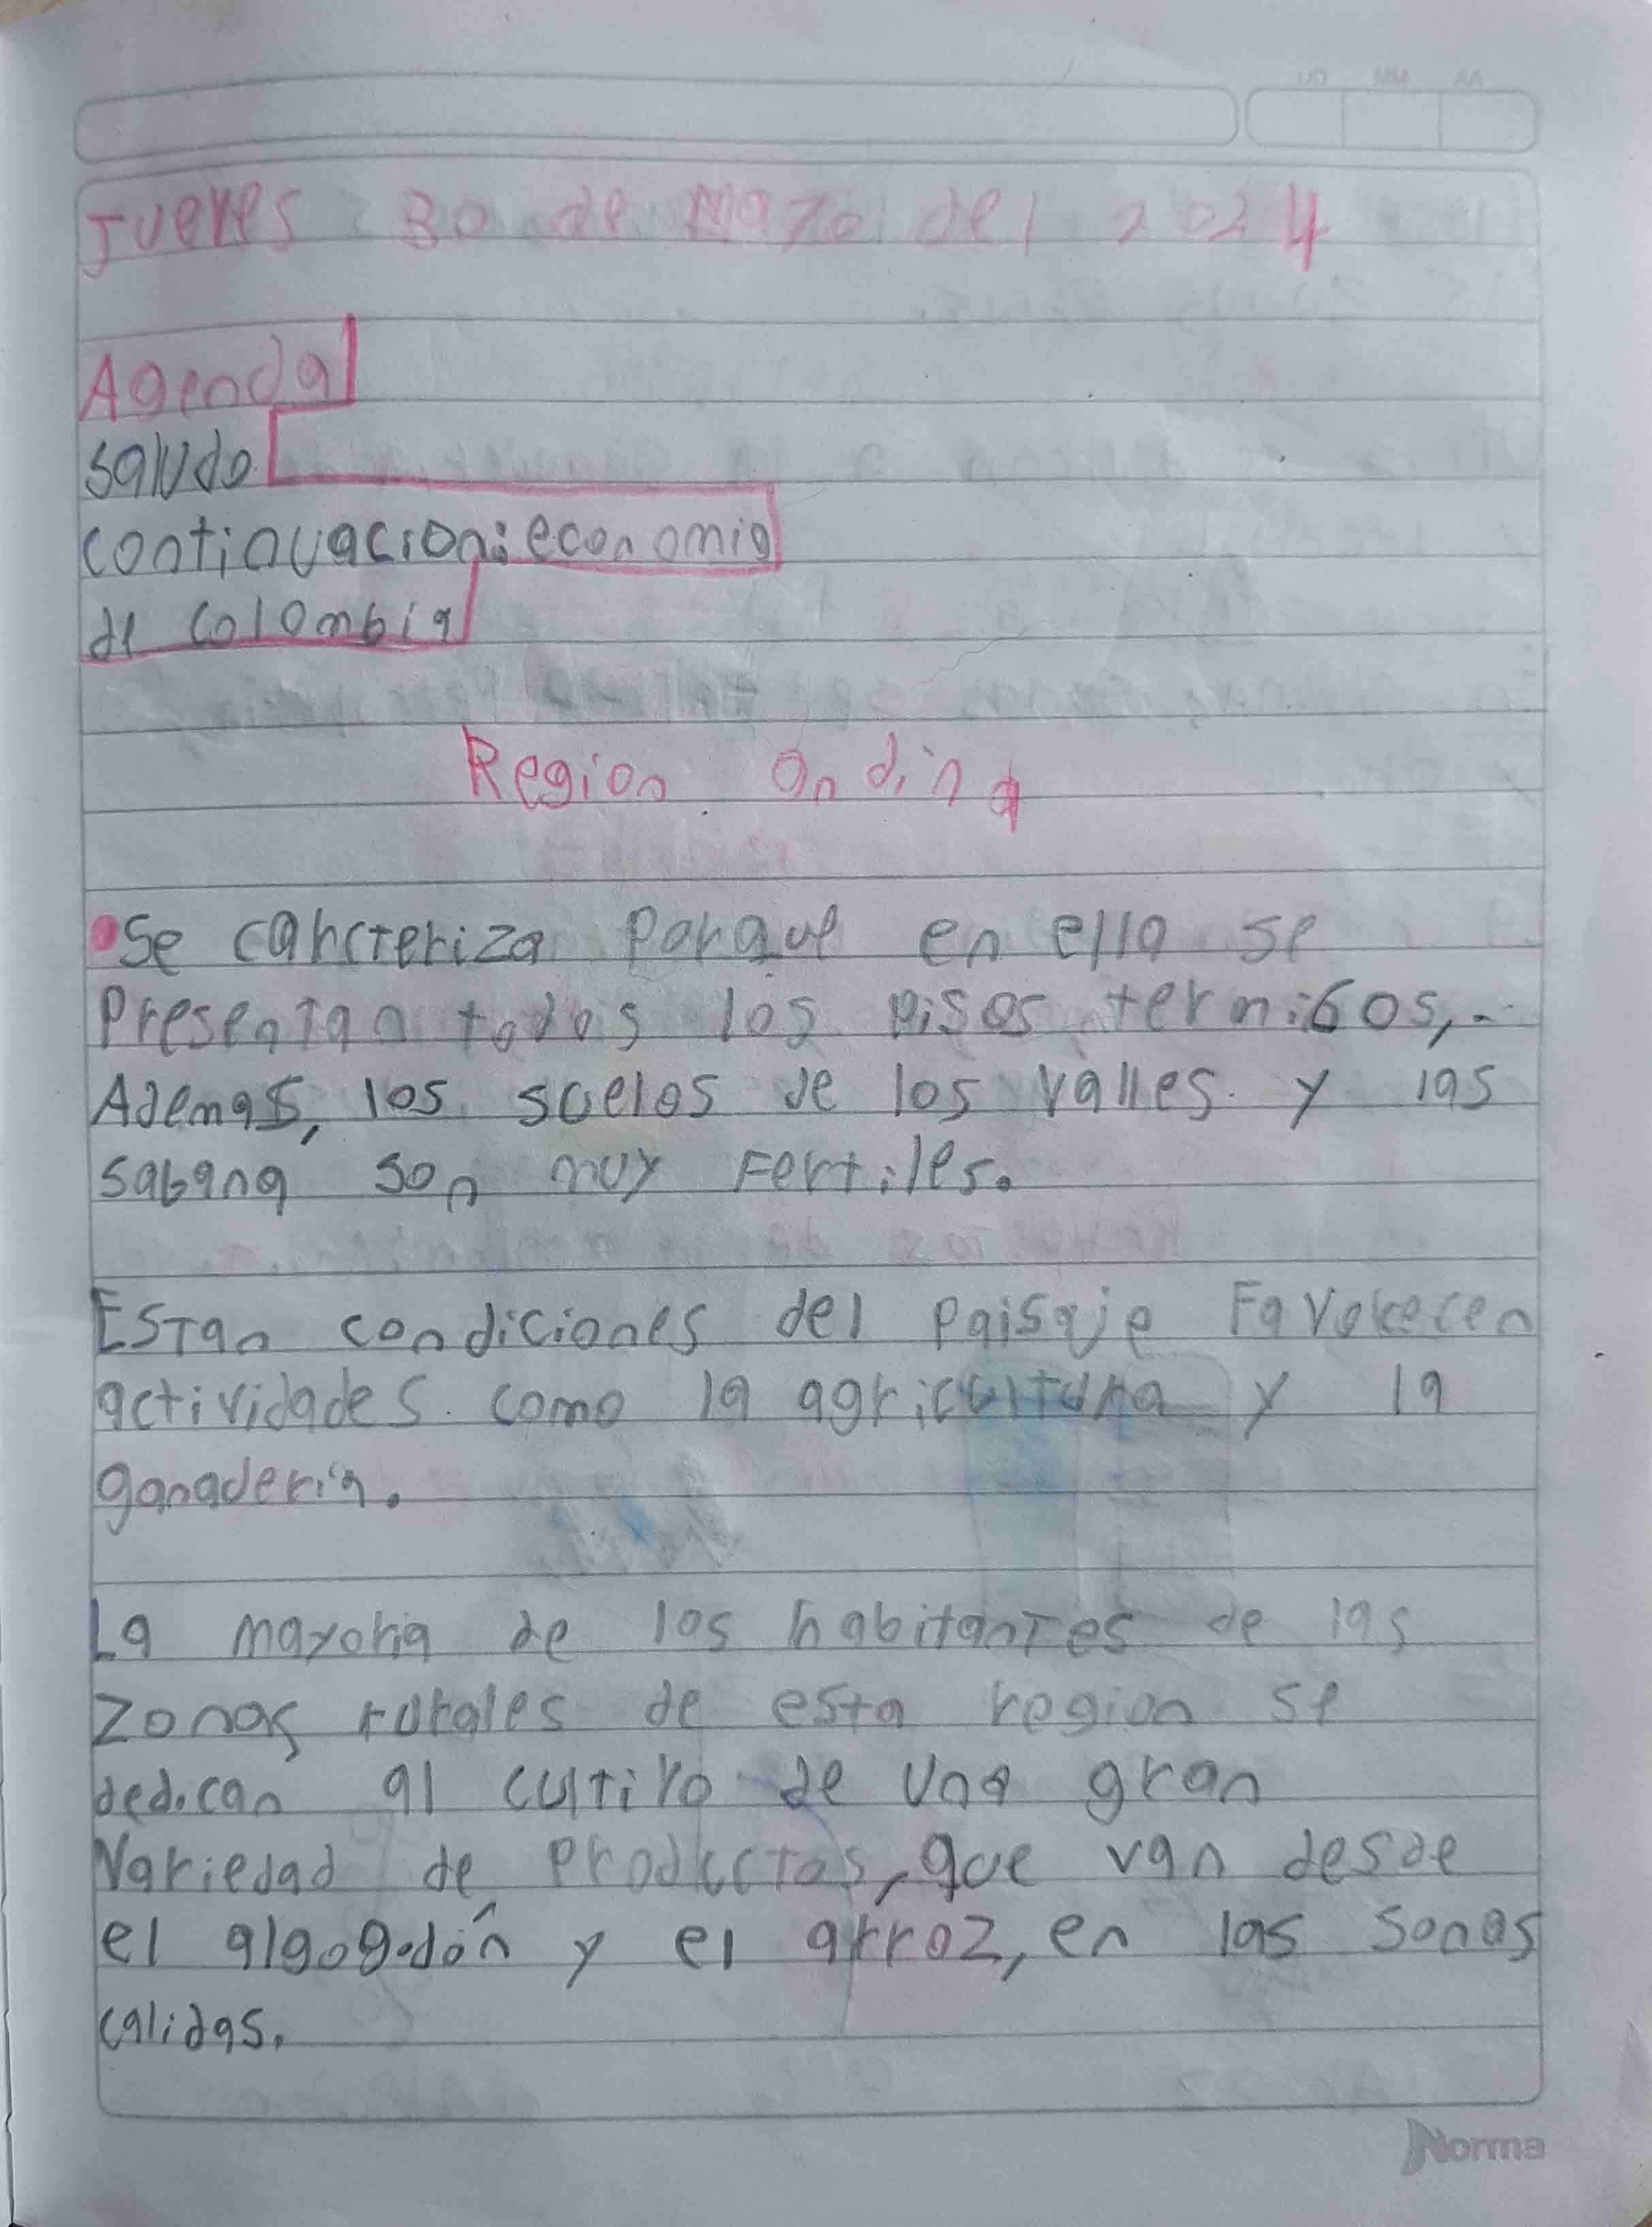 Jueves 30 de Mazo del 2024
Agenda
saludo
continuacion: economia
de Colombia
Region andina
Se carcteriza Porque en ella se
Presentan todos los pisos termicos,
Ademas, los suelos de los valles y las
sabana son muy Fertiles.
Estan condiciones del paisaje Favorecen
actividades como la agricultura y la
ganaderia.
La mayoria de los habitantes de las
Zonas rurales de esta region se
dedican al cultivo de una gran
Variedad de Productos, que van desde
el algogodón y el arroz, en las sonas
calidas.
Norma